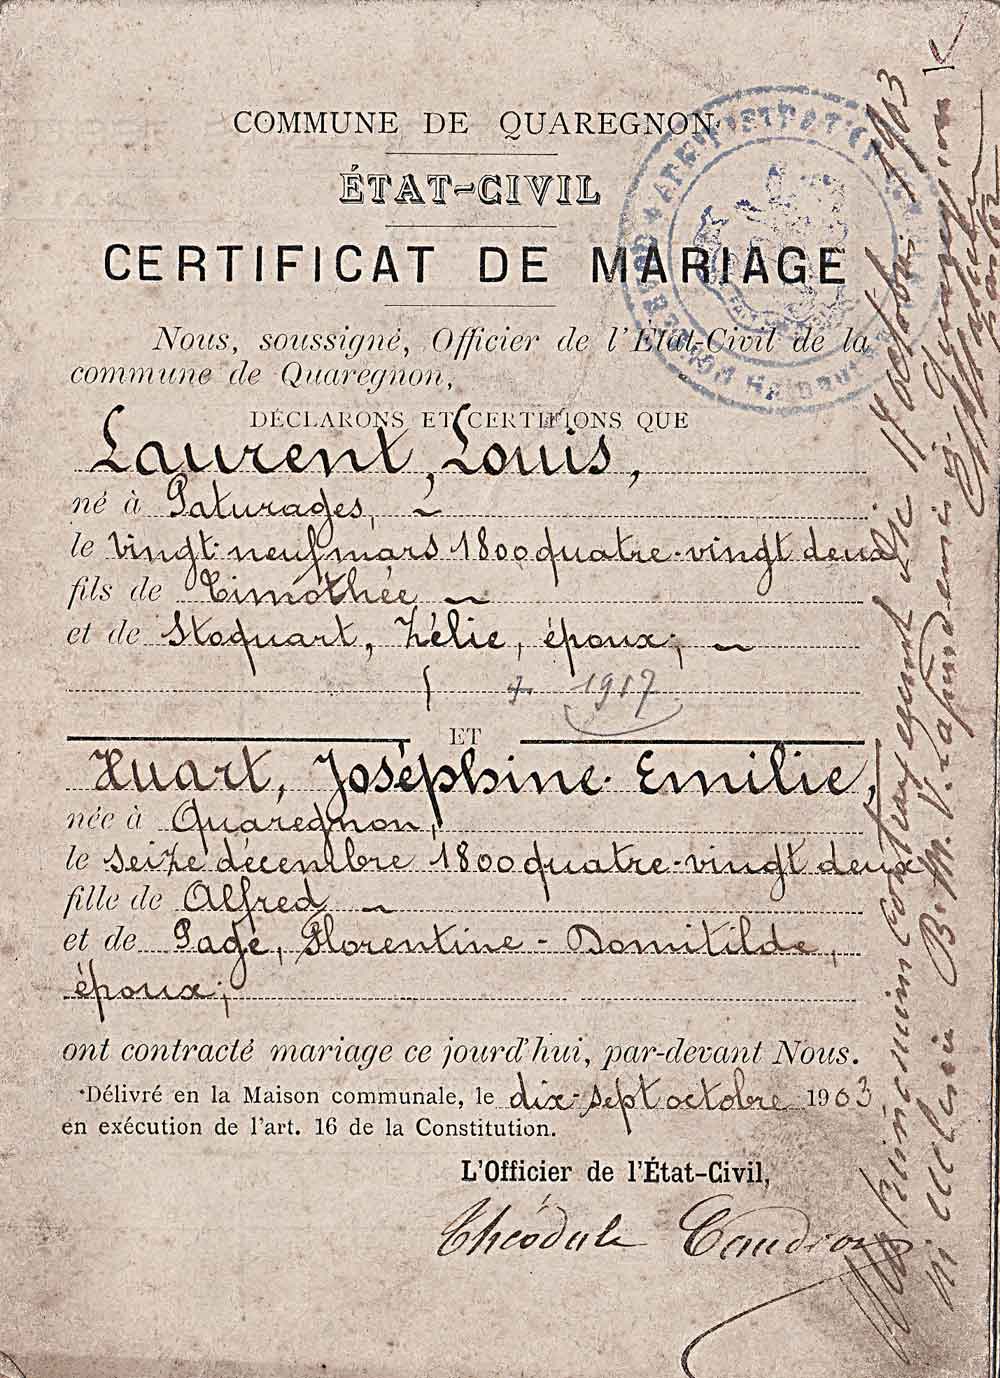 COMMUNE DE QUAREGNON
ÉTAT-CIVIL
CERTIFICAT DE MARIAGE
Nous, soussigné, Officier de l'État-Civil de la
commune de Quaregnon,
DÉCLARONS ET CERTIFIONS QUE
Laurent, Louis,
né à Paturages,
le vingt-neuf mars 1800 quatre-vingt deux
fils de Timothée
et de Stoquart, Zélie, époux;
1917
ET
Huart, Joséphine-Emilie,
née à Quaregnon,
le seize décembre 1800 quatre-vingt deux
fille de Alfred
et de Page, Florentine-Domitilde,
époux;
ont contracté mariage ce jourd'hui, par-devant Nous.
Délivré en la Maison communale, le dix-sept octobre 1903
en exécution de l'art. 16 de la Constitution.
L'Officier de l'État-Civil,
Théodule Caudron
Matrimonium contraxerunt die 17 octobris 1903
in ecclesia B. M. V.